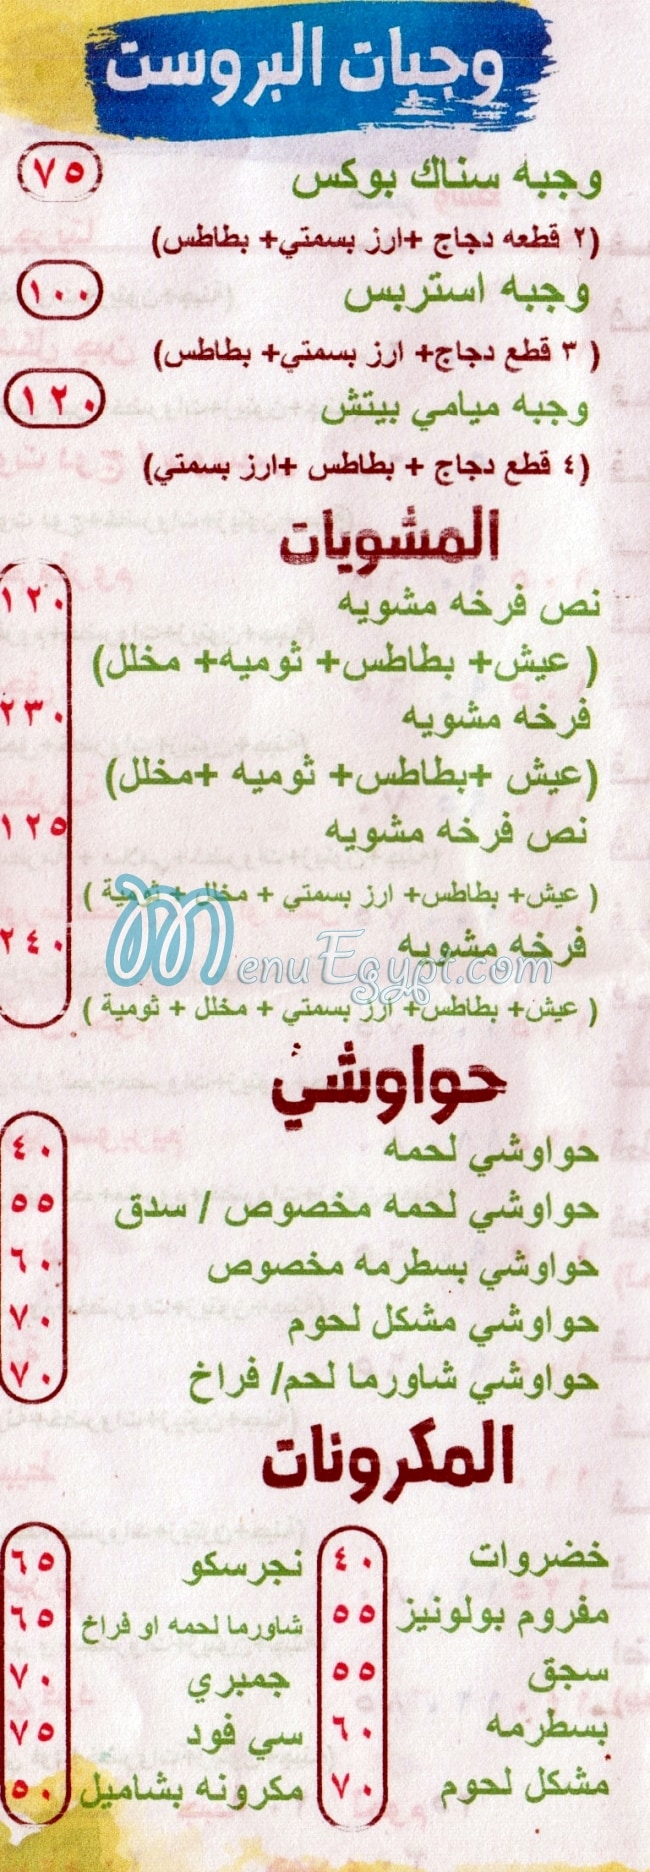 وجبات البروست
وجبه سناك بوكس ٧٥
(٢ قطعه دجاج +ارز بسمتي+ بطاطس)
وجبه استربس ١٠٠
( ٣ قطع دجاج+ ارز بسمتي+ بطاطس)
وجبه ميامي بيتش ١٢٠
(٤ قطع دجاج + بطاطس +ارز بسمتي)
المشويات
نص فرخه مشويه ١٢٠
( عيش+ بطاطس+ ثوميه+ مخلل)
فرخه مشويه ٢٣٠
(عيش +بطاطس+ ثوميه +مخلل)
نص فرخه مشويه ١٢٥
( عيش+ بطاطس+ ارز بسمتي + مخلل + ثومية )
فرخه مشويه ٢٤٠
MenuEgypt.com
( عيش+ بطاطس+ ارز بسمتي + مخلل + ثومية )
حواوشي
حواوشي لحمه ٤٠
حواوشي لحمه مخصوص / سدق ٥٥
حواوشي بسطرمه مخصوص ٦٠
حواوشي مشكل لحوم ٧٠
حواوشي شاورما لحم/ فراخ ٧٠
المكرونات
خضروات ٤٠ نجرسكو ٦٥
مفروم بولونيز ٥٥ شاورما لحمه او فراخ ٦٥
سجق ٥٥ جمبري ٧٠
بسطرمه ٦٠ سي فود ٧٥
مشكل لحوم ٧٠ مكرونه بشاميل ٥٠